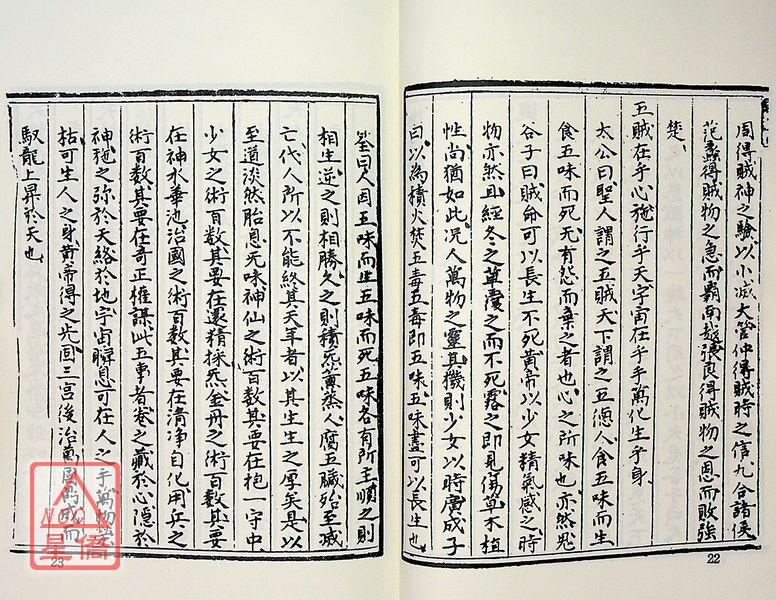 周得賊神之驗以小滅大管仲得賊時之信九合諸侯
范蠡得賊物之急而霸南越張良得賊物之恩而敗強
楚
五賊在乎心施行乎天宇宙在乎手萬化生乎身
太公曰聖人謂之五賊天下謂之五德人食五味而生
食五味而死无有怨而棄之者也心之所味也亦然鬼
谷子曰賊命可以長生不死黃帝以少女精氣感之時
物亦然且經冬之草覆之而不死露之即見傷草木植
性尚猶如此況人萬物之靈其機則少女以時廣成子
曰以為積火焚五毒五毒即五味五味盡可以長生也
22
筌曰人因五味而生五味而死五味各有所主順之則
相生逆之則相勝久之則積炁薰蒸人腐五臟殆至滅
亡代人所以不能終其天年者以其生生之厚矣是以
至道淡然胎息无味神仙之術百數其要在抱一守中
少女之術百數其要在還精採炁金丹之術百數其要
在神水華池治國之術百數其要在清淨自化用兵之
術百數其要在奇正權謀此五事者卷之藏於心隱於
神施之弥於天絡於地宇宙瞬息可在人之手萬物榮
枯可生人之身黃帝得之先固三宮後治萬國鼎成而
馭龍上昇於天也
23
星僑